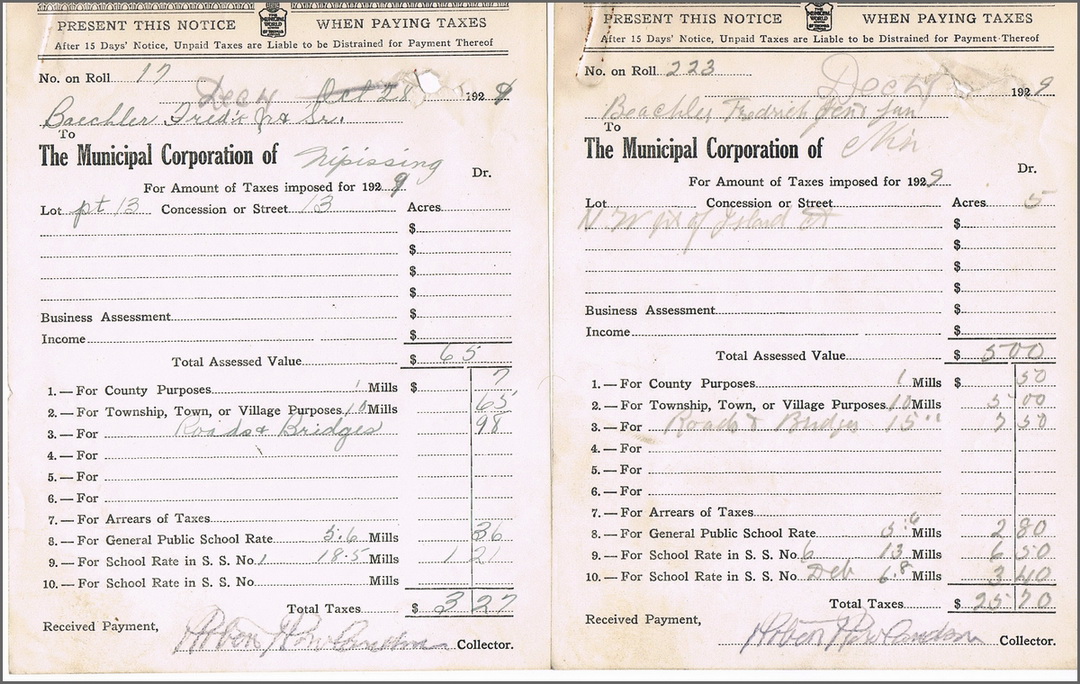 PRESENT THIS NOTICE WHEN PAYING TAXES
After 15 Days' Notice, Unpaid Taxes are Liable to be Distrained for Payment Thereof
No. on Roll 17
Dec 4 Oct 28 192 9
Baechler Fred'k Sr.
To
The Municipal Corporation of Nipissing
Dr.
For Amount of Taxes imposed for 192 9
Lot pt 13 Concession or Street 13 Acres
$
$
$
$
Business Assessment $
Income $
Total Assessed Value $ 65
1.—For County Purposes 1 Mills $ 7
2.—For Township, Town, or Village Purposes 10 Mills 65
3.—For Roads & Bridges 98
4.—For
5.—For
6.—For
7.—For Arrears of Taxes
8.—For General Public School Rate 5.6 Mills 36
9.—For School Rate in S. S. No. 1 18.5 Mills 1 21
10.—For School Rate in S. S. No. Mills
Total Taxes $ 3 27
Received Payment,
Collector.
PRESENT THIS NOTICE WHEN PAYING TAXES
THE MUNICIPAL WORLD
After 15 Days' Notice, Unpaid Taxes are Liable to be Distrained for Payment Thereof
No. on Roll 223
Dec 192 9
Beachler Fredrich Jun
To
The Municipal Corporation of Nip
Dr.
For Amount of Taxes imposed for 192 9
Lot Concession or Street Acres 5
N W pt of Island $
$
$
$
Business Assessment $
Income $
Total Assessed Value $ 500
1.—For County Purposes 1 Mills $ 50
2.—For Township, Town, or Village Purposes 10 Mills 5 00
3.—For Roads & Bridges 15 " 7 50
4.—For
5.—For
6.—For
7.—For Arrears of Taxes
8.—For General Public School Rate 5.6 Mills 2 80
9.—For School Rate in S. S. No. 6 13 Mills 6 50
10.—For School Rate in S. S. No. Deb 6.8 Mills 3 40
Total Taxes $ 25 70
Received Payment,
Collector.